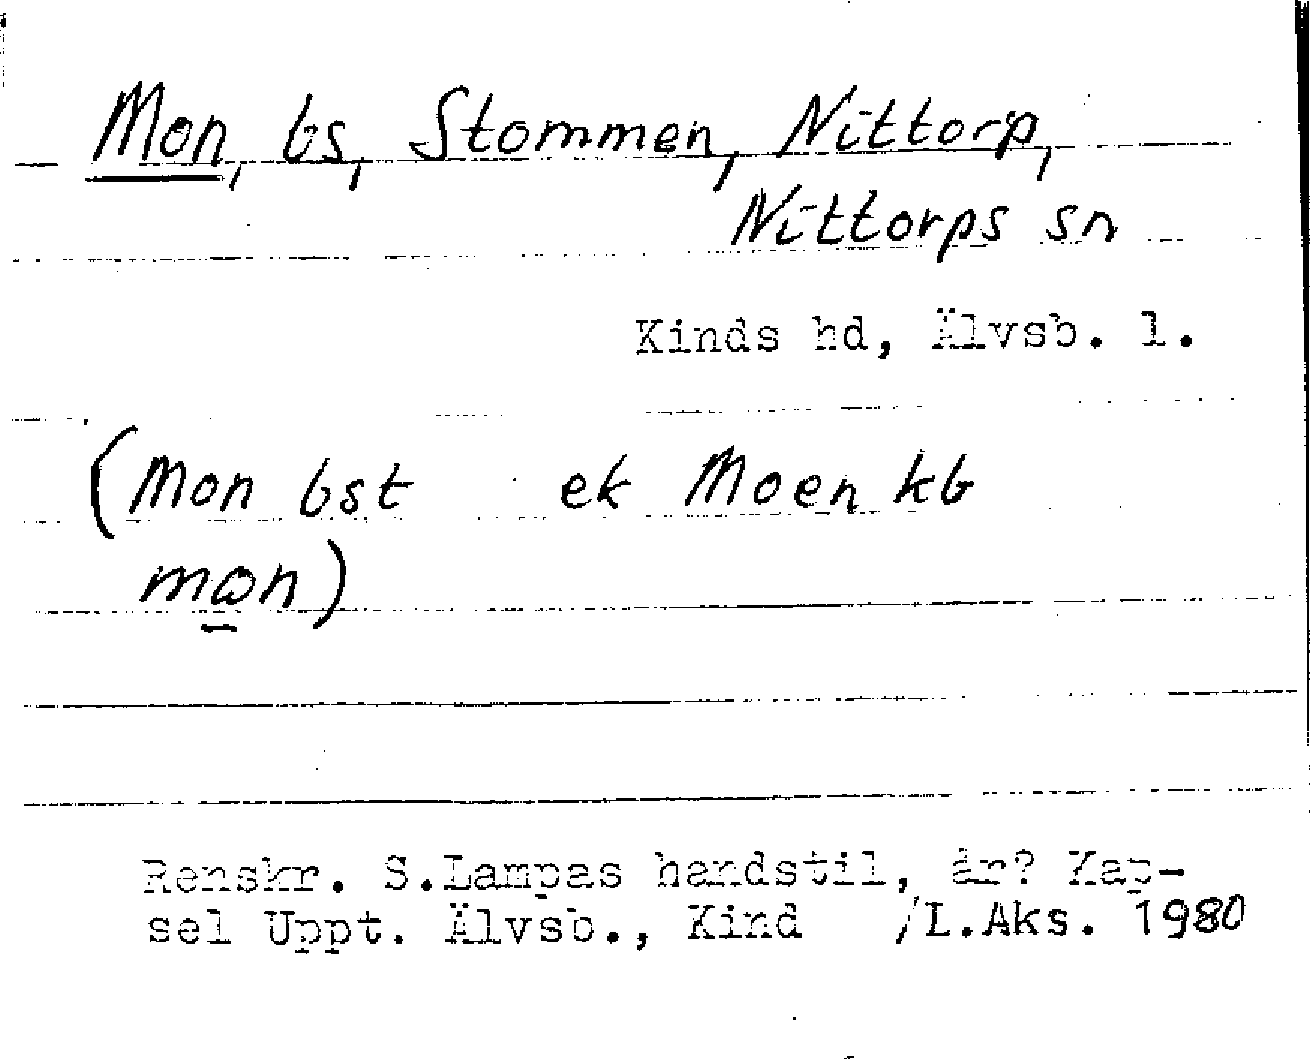 Mon, bs, Stommen, Nittorp,
Nittorps sn
Kinds hd, Älvsb. l.
(Mon bst ek Moen kb
mɷn)
Renskr. S.Lampas handstil, år? Kap-
sel Uppt. Älvsb., Kind /L.Aks. 1980